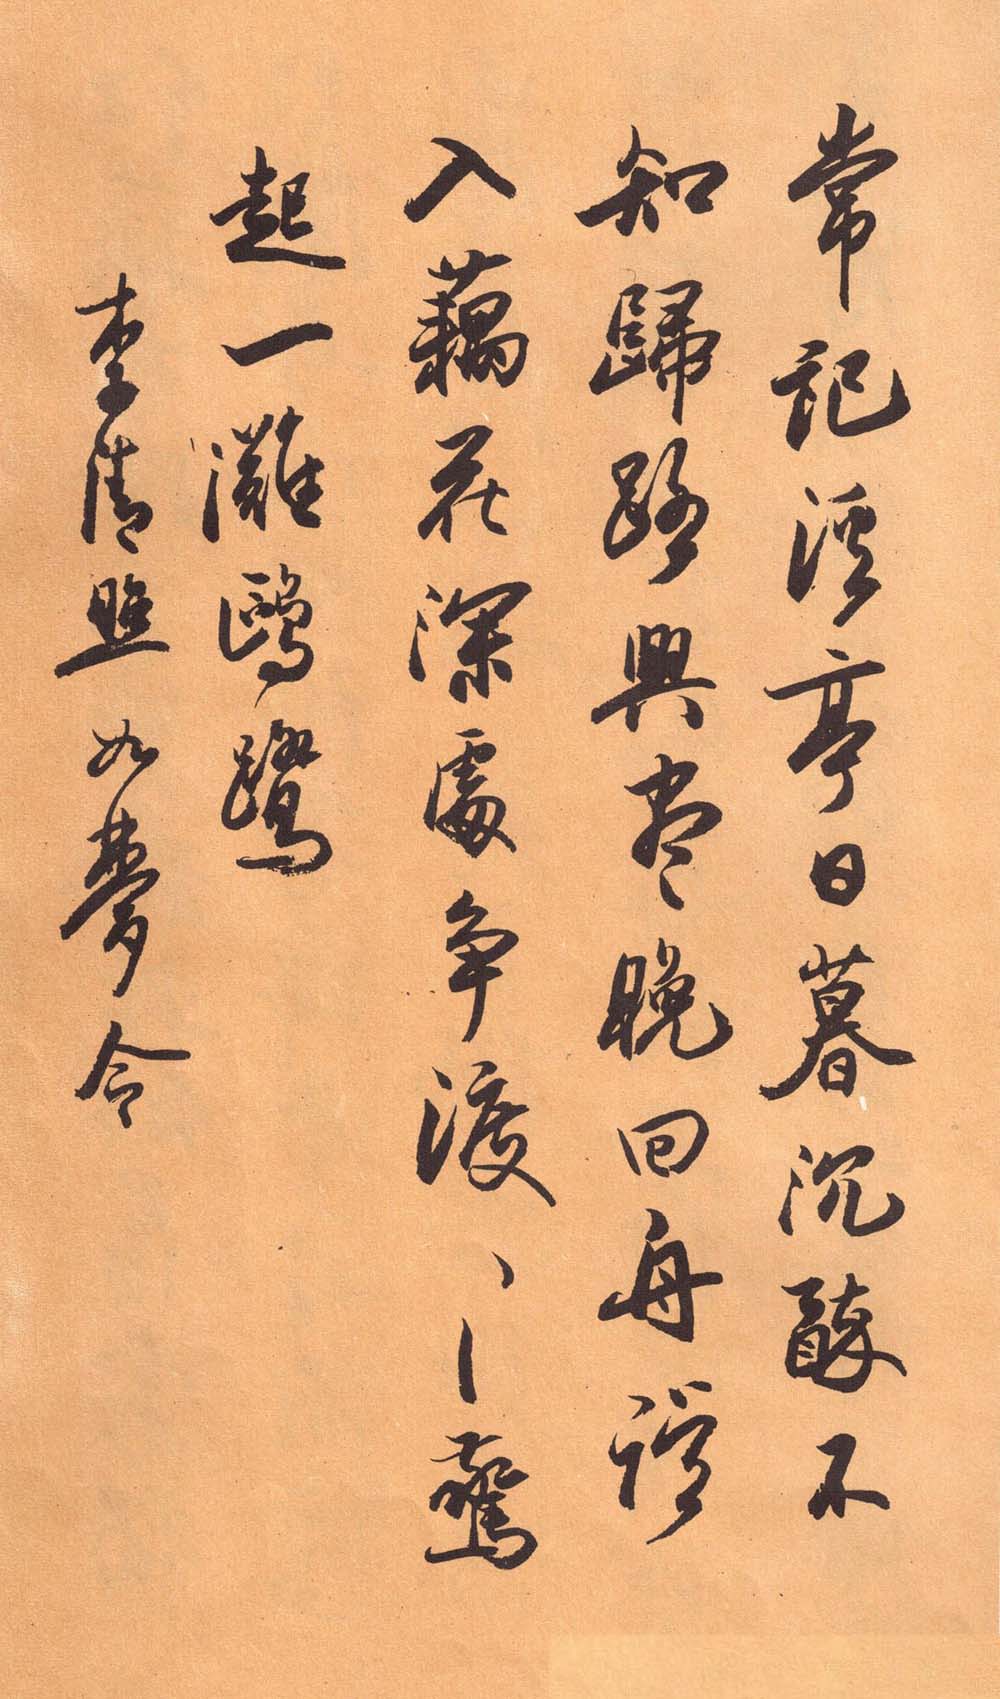 常記溪亭日暮沉醉不
知歸路興盡晚回舟誤
入藕花深處爭渡〻驚
起一灘鷗鷺
李清照如夢令